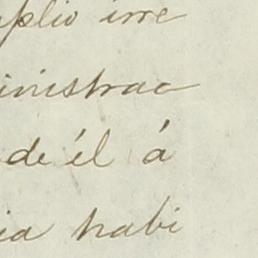 mplio irre
inistrac
de él á
ia habi